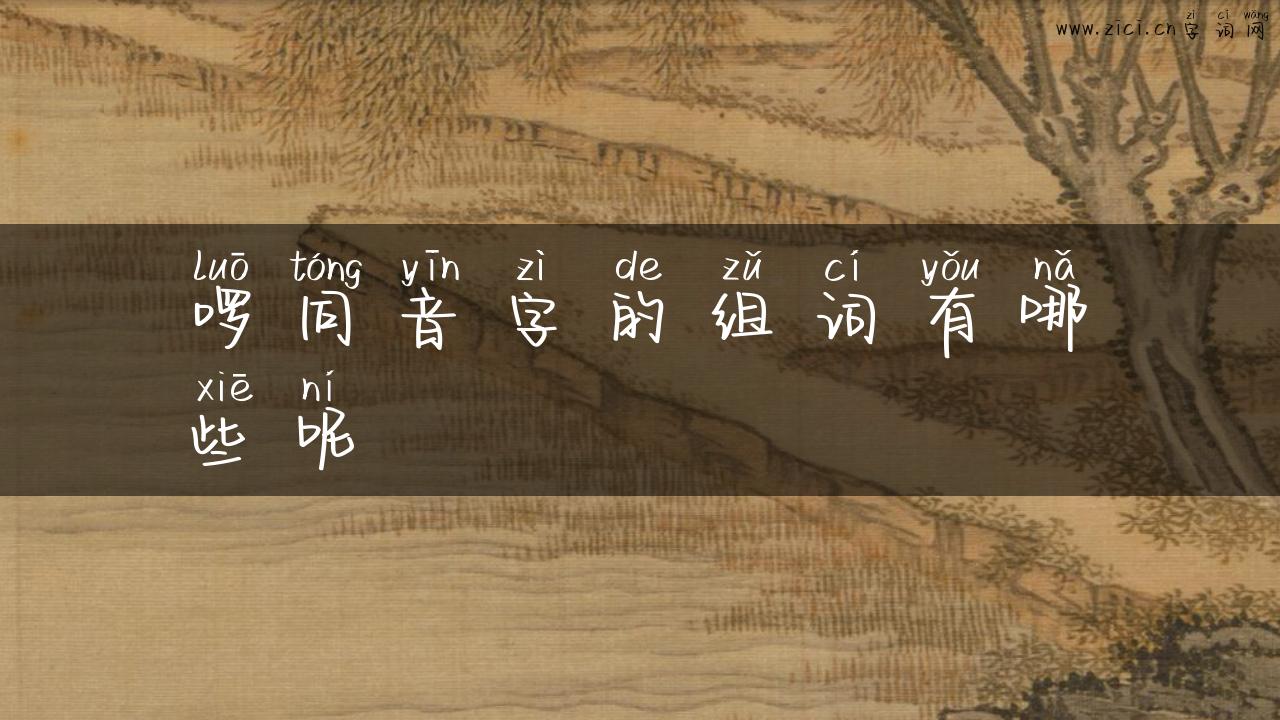 zì cí wǎng
www.zici.cn字词网
luō tóng yīn zì de zǔ cí yǒu nǎ
啰同音字的组词有哪
xiē ní
些呢